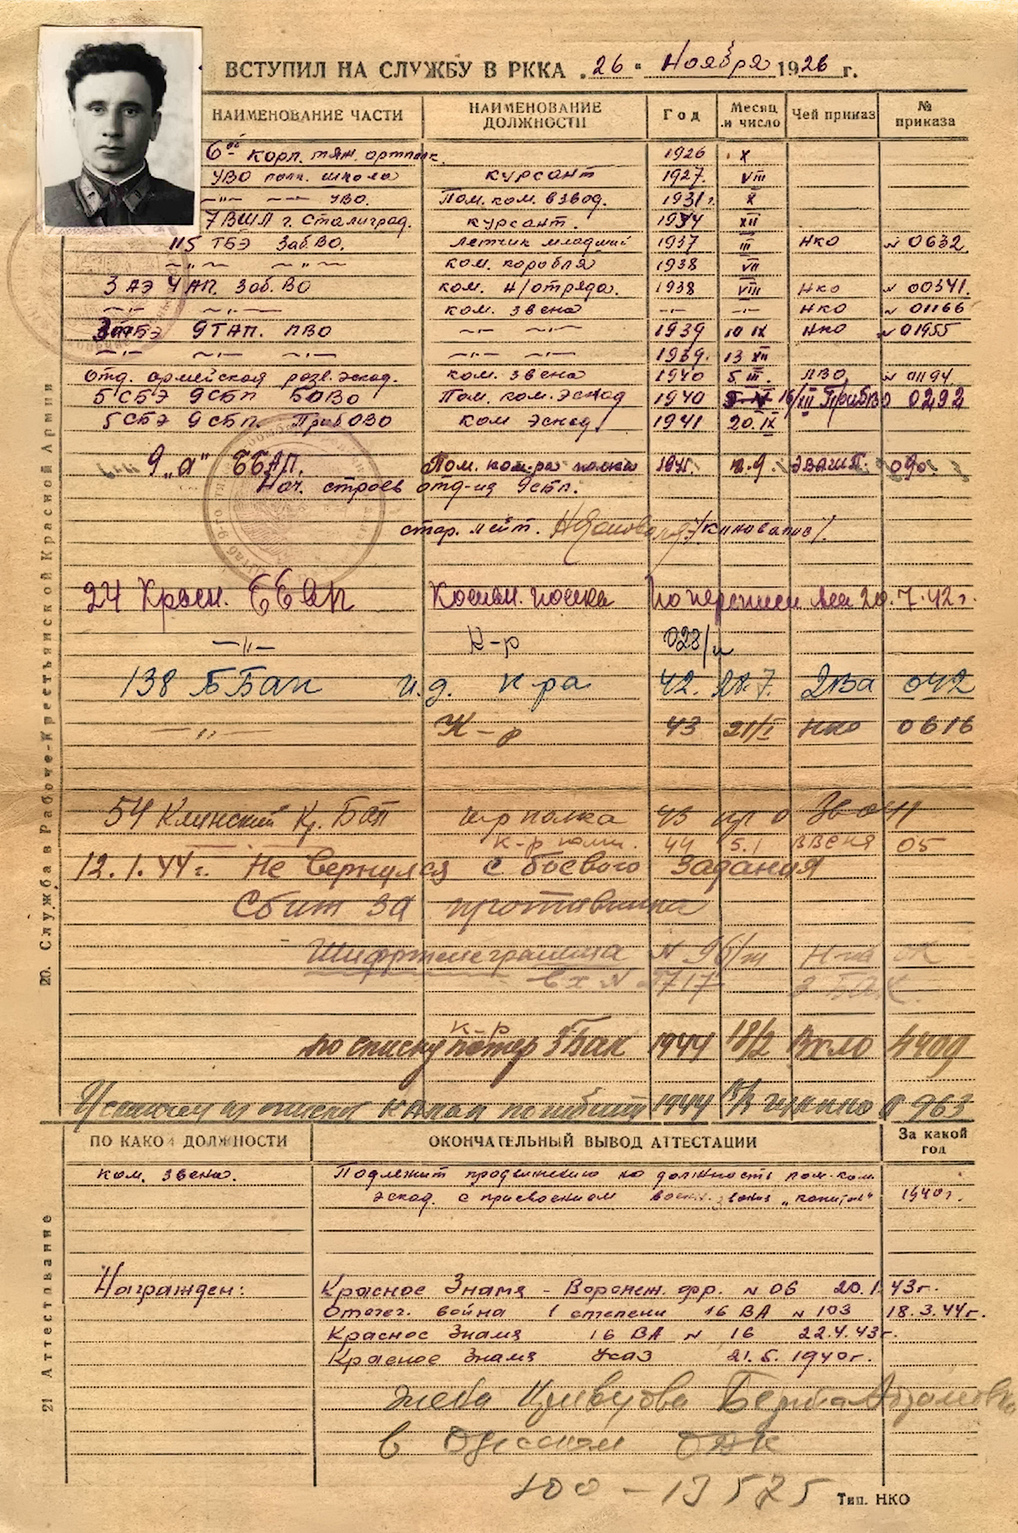 ВСТУПИЛ НА СЛУЖБУ В РККА „26" Ноября 1926 г.
НАИМЕНОВАНИЕ ЧАСТИ НАИМЕНОВАНИЕ ДОЛЖНОСТИ Год Месяц и число Чей приказ № приказа
6ой корп. тяж. артполк. 1926 X
УВО полк. школа курсант 1927. VIII
—"— —"— УВО. Пом. ком. взвод. 1931г. X
7 ВШЛ г. Сталинград. курсант. 1934 XII
115 ТБЭ ЗабВО. Летчик младший 1937 III НКО № 0632
—"— —"— ком. корабля 1938 VII
3 АЭ 4АП. Заб.ВО ком. н/отряда. 1938 VIII НКО № 00541.
—"— ком. звена —"— —"— НКО № 01166
3тбэ 9ТАП. ЛВО —"— —"— 1939 10 IX НКО № 01955
—"— —"— —"— —"— —"— 1939. 13 XII
Отд. армейской разв. эскад. ком. звена 1940 5 III. ЛВО № 01194
5СБЭ 9СБП БОВО Пом. ком. эскад 1940 ПрибВО 0292
5СБЭ 9СБП. ПрибОВО ком эскад. 1941 20. IX
9 „а" ББАП. Пом. ком-ра полка 1941.
Нач. строев отд-из 9СБП.
стар. лейт.
24 Красн. ББАП Команд. полка по переписи на 20.7.42г.
—"— К-р 023/н
138 ББап и.д. к-ра 42. 28.7. 2Ва 042
—"— К-р 43 21/I НКО 0616
54 Клинский Кр. Бап к-р полка 43
44 5.1 05
12.1.44г. Не вернулся с боевого задания
Сбит ЗА противника
Шифртелеграмма N 96/ш
вх N 1717 3 БАК.
к-р
по списку потер Бак 1944 18/2
погибший 1944 0963
ПО КАКОЙ ДОЛЖНОСТИ ОКОНЧАТЕЛЬНЫЙ ВЫВОД АТТЕСТАЦИИ За какой год
ком. звена. Подлежит продвижению на должность пом. ком.
эскад. с присвоением воен. звания „капитан" 1940г.
Награжден: Красное Знамя - Воронеж. фр. № 06 20.1.43г.
Отечег. война 1 степени 16 ВА № 103 18.3.44г.
Красное Знамя 16 ВА № 16 22.4.43г.
Красное Знамя Указ 21.5.1940г.
жена Берта Абрамовна
в Одесском
100-13525
Тип. НКО
20. Служба в Рабоче-Крестьянской Красной Армии
21 Аттестование